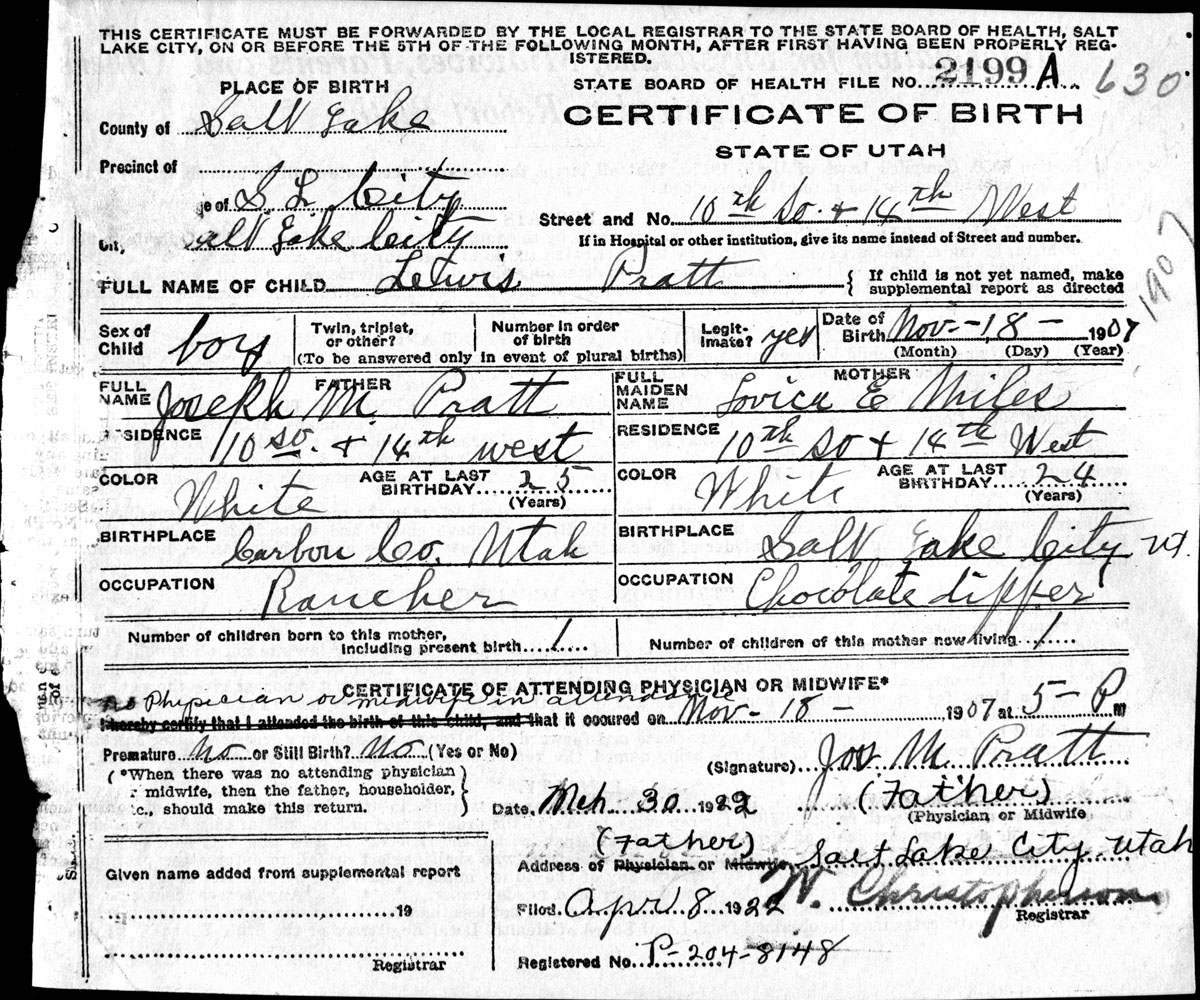 THIS CERTIFICATE MUST BE FORWARDED BY THE LOCAL REGISTRAR TO THE STATE BOARD OF HEALTH, SALT
LAKE CITY, ON OR BEFORE THE 5TH OF THE FOLLOWING MONTH, AFTER FIRST HAVING BEEN PROPERLY REG-
ISTERED.
STATE BOARD OF HEALTH FILE NO. 2199 A. 630
PLACE OF BIRTH
CERTIFICATE OF BIRTH
County of Salt Lake
STATE OF UTAH
Precinct of
ge of S. L. City
Street and No. 10th So. & 14th West
City, Salt Lake City
If in Hospital or other institution, give its name instead of Street and number.
1907
FULL NAME OF CHILD Lewis Pratt { If child is not yet named, make
supplemental report as directed
Sex of Child boy
Twin, triplet, or other?
Number in order of birth
(To be answered only in event of plural births)
Legit-imate? yes
Date of Birth Nov. - 18 - 1907
(Month) (Day) (Year)
FATHER
FULL NAME Joseph M. Pratt
MOTHER
FULL MAIDEN NAME Lovica E Miles
RESIDENCE 10 so. & 14th west
RESIDENCE 10th so & 14th West
COLOR White AGE AT LAST BIRTHDAY 25 (Years)
COLOR White AGE AT LAST BIRTHDAY 24 (Years)
BIRTHPLACE Carbon Co. Utah
BIRTHPLACE Salt Lake City Ut.
OCCUPATION Rancher
OCCUPATION Chocolate dipper
Number of children born to this mother, including present birth 1
Number of children of this mother now living 1
CERTIFICATE OF ATTENDING PHYSICIAN OR MIDWIFE*
no Physician or midwife in attendance
I hereby certify that I attended the birth of this child, and that it occured on Nov - 18 - 1907 at 5 - P m
Premature No or Still Birth? No (Yes or No)
(Signature) Jos. M. Pratt
(Father)
(Physician or Midwife
( *When there was no attending physician )
r midwife, then the father, householder,
tc., should make this return.
Date Mch 30 1922
(Father)
Address of Physician or Midwife Salt Lake City Utah
Given name added from supplemental report
19
Registrar
Filed Apr 8 1922 W. Christopherson
Registrar
Registered No. P-204-8148